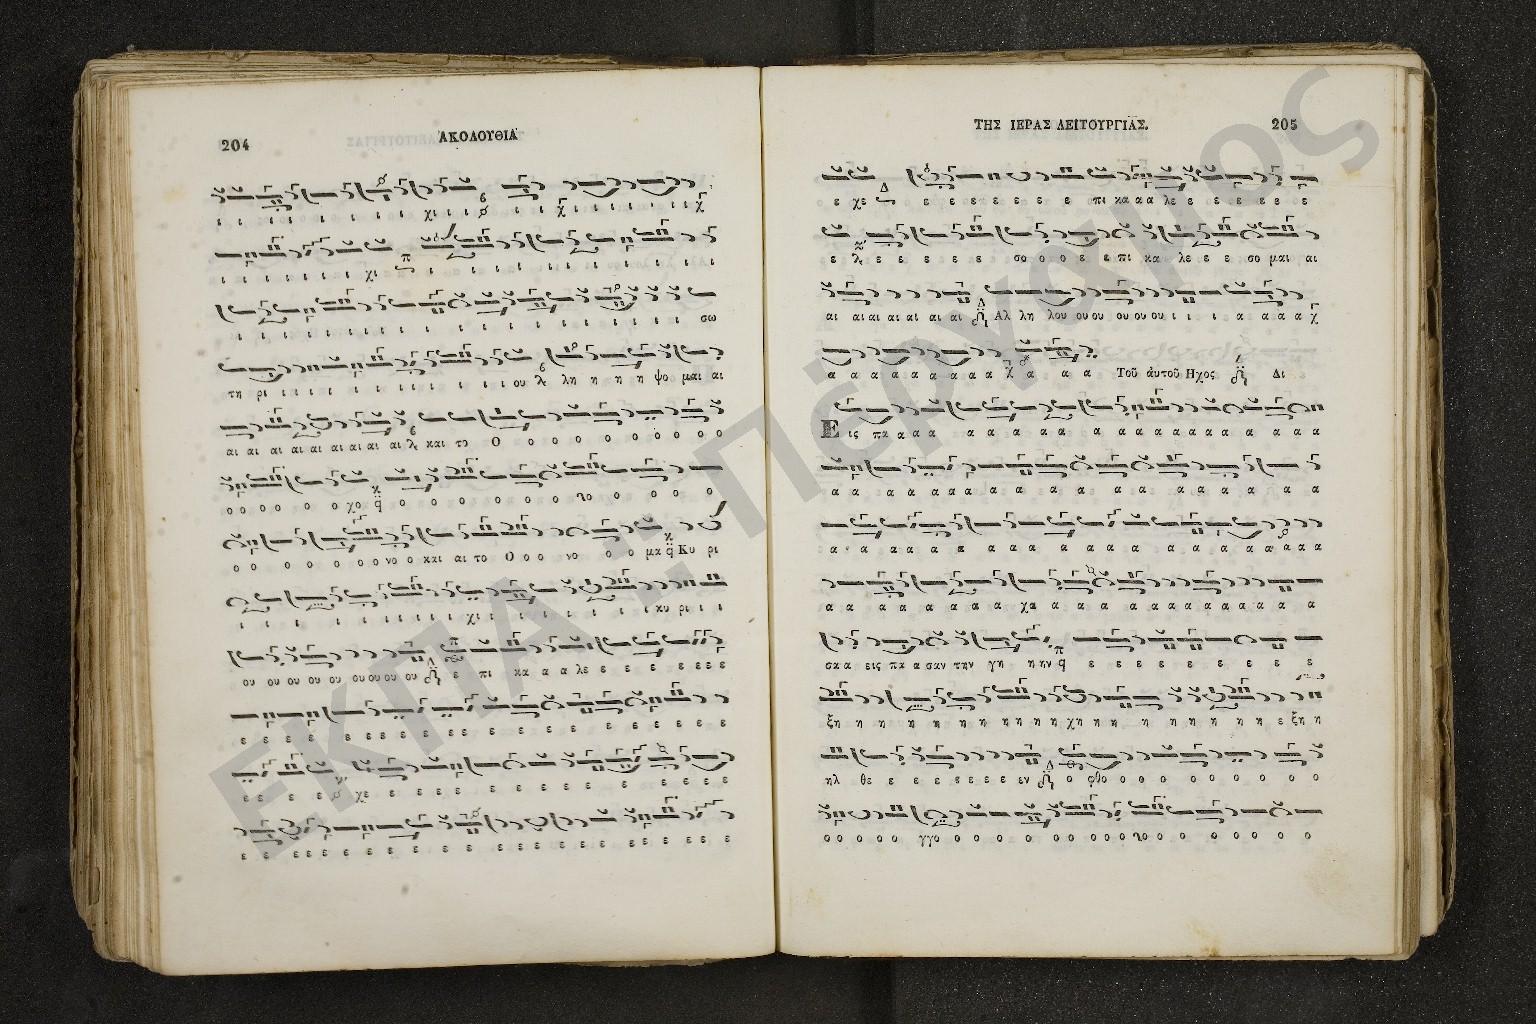 204
ἈΚΟΛΟΥΘΙΑ
ι ι ι ι ι ι ι ι χι ι ι ι ι χ ι ι ι ι ι ι ι χ
ι ι ι ι ι ι χι π ι ι ι ι ι ι ι ι ι ι
ι ι ι ι ι ι ι ι ι ι ι ι ι ι ι ι ι ι σω
τη ρι ι ι ι ι ι ι ι ι ι ι ι ι ου λη η η η ψο μαι αι
αι αι αι αι αι αι αι αι αι και το Ο ο ο ο ο ο ο ο ο ο ο
ο ο ο ο ο ο χο ο ο ο ο ο ο ο ο ο ο ο ο
ο ο ο ο ο ο ο νο ο και αι το Ο ο ο νο ο ο μα Κυ ρι
ι ι ι ι ι ι ι ι ι χι ι ι ι ι ι ι ι ι κυ ρι ι ι
ου ου ου ου ου ου ου ου ου ε πι κα α α λε ε ε ε ε ε ε ε
ε ε ε ε ε ε ε ε ε ε ε ε ε ε ε ε ε ε ε
ε ε ε ε χε ε ε ε ε ε ε ε ε ε ε ε ε ε
ε ε ε ε ε ε ε ε ε ε ε ε ε ε ε ε ε ε ε ε ε
ΤΗΣ ΙΕΡΑΣ ΛΕΙΤΟΥΡΓΙΑΣ.
205
ε χε ε ε ε ε ε ε ε ε πι κα α α λε ε ε ε ε ε ε
ε ε ε ε ε ε ε σο ο ο ε ε πι κα λε ε ε σο μαι αι
αι αι αι αι αι αι αι Αλ λη λου ου ου ου ου ου ι ι ι α α α α χ
α α α α α α α α α χ α α α Τοῦ ἀυτοῦ Ηχος Δι
Ε ις πα α α α α α α α α α α α α α α α α α α α α
α α α α α α α α α α α α α α α α α α
α α α α α α α α α α α α α α α α α α α α
α α α α α α α χα α α α α α α α α α α α α
σα α εις πα α σαν την γη η ην ε ε ε ε ε ε ε ε ε ε
ξη η η η η η η η η η η χη η η η η η η η η ε ξη η
ηλ θε ε ε ε ε ε ε ε εν ο φθο ο ο ο ο ο ο ο ο ο
ο ο ο ο ο γγο ο ο ο ο ο ο ο ο ο ο ο ο ο ο ο ο
ΕΚΠΑ: Πέργαμος